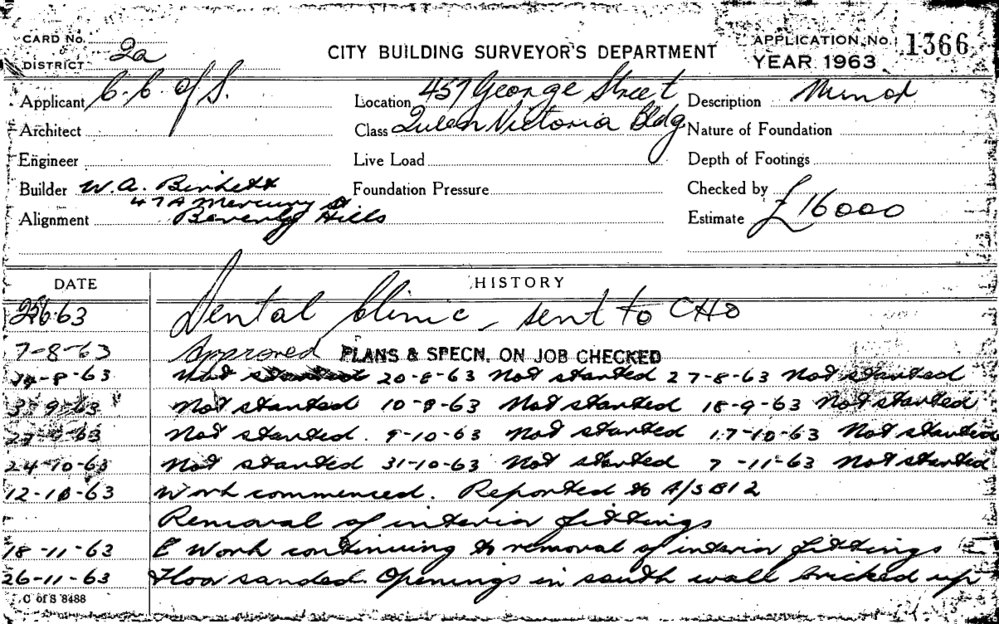 CARD No.
DISTRICT 2a
CITY BUILDING SURVEYOR'S DEPARTMENT
APPLICATION No. 1366
YEAR 1963
Applicant C. C. of S.
Location 457 George Street
Description Minor
Architect
Class Queen Victoria Bldg
Nature of Foundation
Engineer
Live Load
Depth of Footings
Builder W. A. Birkett
47A Mercury St
Foundation Pressure
Checked by
Alignment Beverly Hills
Estimate £16000
DATE HISTORY
63 Dental Clinic - sent to CHO
7-8-63 Approved PLANS & SPECN. ON JOB CHECKED
-8-63 Not started 20-8-63 Not started 27-8-63 Not started
3-9-63 Not started 10-9-63 Not started 18-9-63 Not started
-63 Not started. 9-10-63 Not started 17-10-63 Not started
24-10-63 Not started 31-10-63 Not started 7-11-63 Not started
12-10-63 Work commenced. Reported to A/SB12
Removal of interior fittings
18-11-63 E Work continuing to removal of interior fittings
26-11-63 Floor sanded Openings in south wall bricked up
C of S 8488